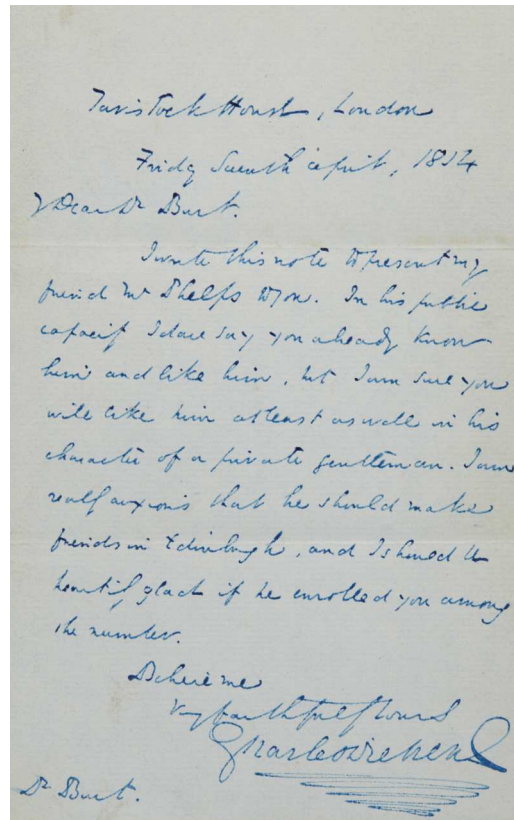 Tavistock House, London
Friday Seventh April, 1854
My Dear Dr Burt.
I write this note to present my
friend Mr Phelps to you. In his public
capacity I dare say you already know
him and like him, but I am sure you
will like him at least as well in his
character of a private gentleman. I am
really anxious that he should make
friends in Edinburgh, and I should be
heartily glad if he enrolled you among
the number.
Believe me
Very faithfully Yours
Charles Dickens
Dr Burt.